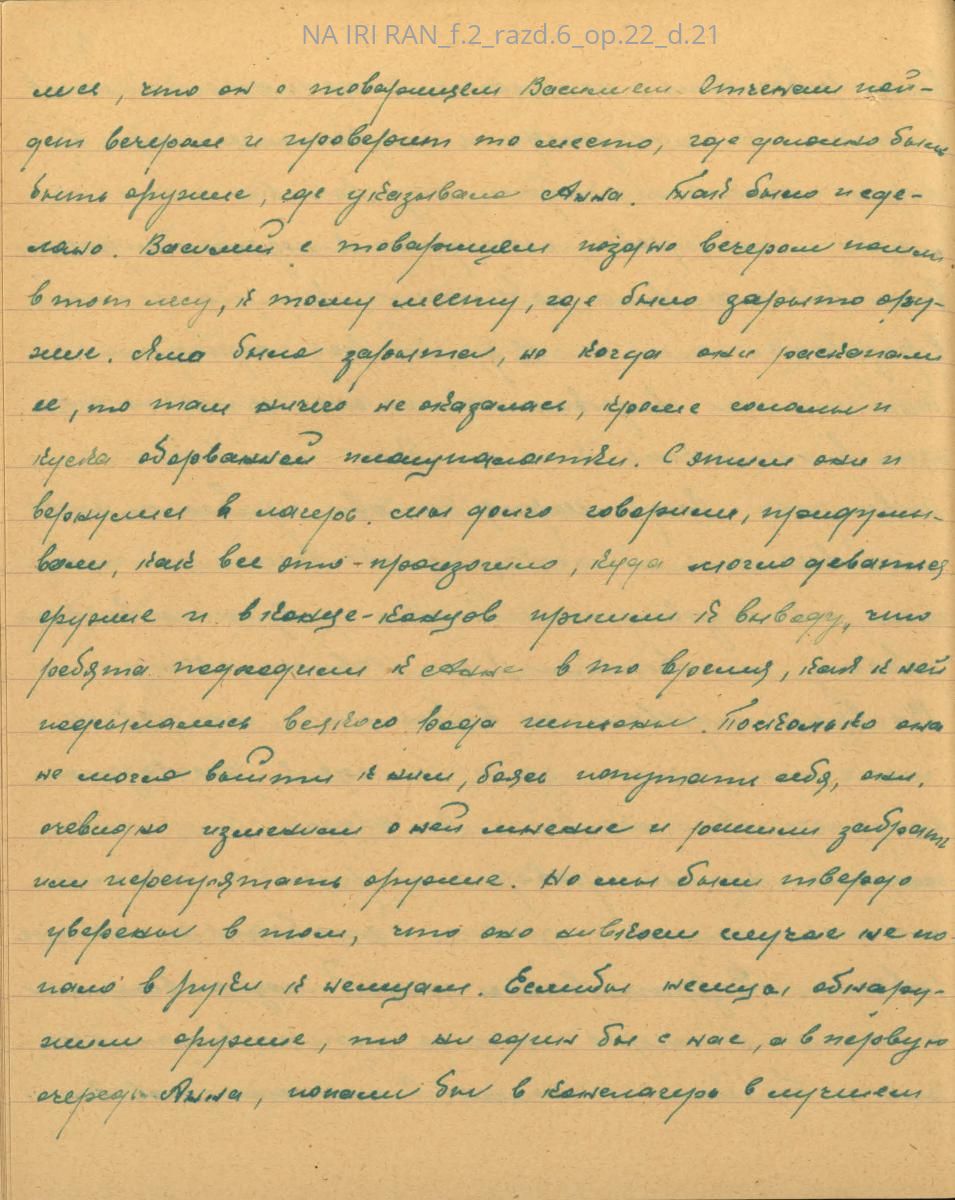 NA IRI RAN_f.2_razd.6_op.22_d.21
лись, что он с товарищем Василием Отченаш пой-
дет вечером и проверит то место, где должно было
быть оружие, где указывала Анна. Так было и сде-
лано. Василий с товарищем поздно вечером пошли
в тот лесу, к тому месту, где было зарыто ору-
жие. Яма была зарыта, но когда они раскопали
ее, то там ничего не оказалась, кроме соломы и
куска оборванной плащпалатки. С этим они и
вернулись в лагерь. Мы долго говорили, придумы-
вали, как все это-произошло, куда могло деваться
оружие и в конце-концов пришли к выводу, что
ребята подходили к Анне в то время, как к ней
подсылались всякого рода шпионы. Поскольку она
не могла выйти к ним, боясь попутать себя, они,
очевидно изменили о ней мнение и решили забрать
или перепрятать оружие. Но мы были твердо
уверены в том, что оно нивкоем случае не по
пало в руки к немцам. Еслибы немцы обнару-
жили оружие, то ни один бы с нас, а в первую
очередь Анна, попали бы в концлагерь в лучшем